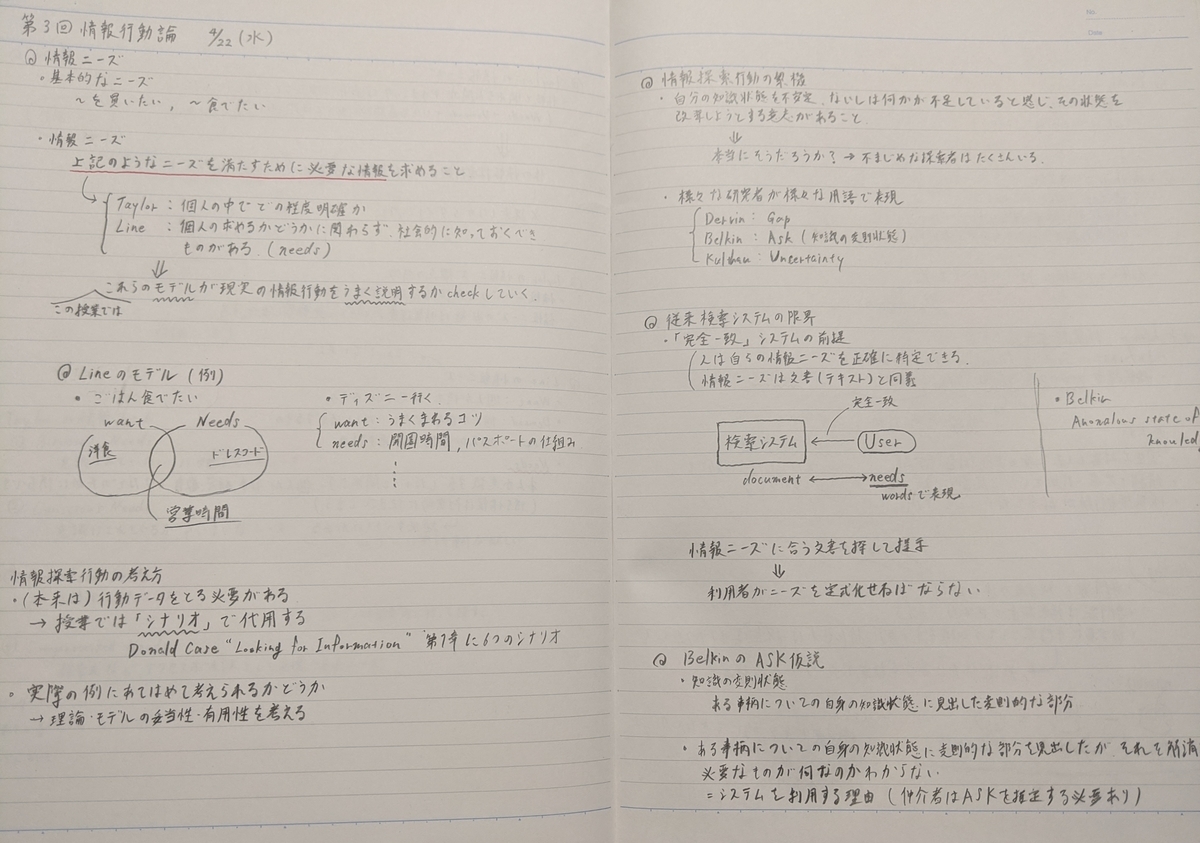 第3回 情報行動論 4/22(水)
@ 情報ニーズ
・基本的なニーズ
〜を買いたい, 〜食べたい
・情報ニーズ
上記のようなニーズを満たすために必要な情報を求めること
Taylor : 個人の中でどの程度明確か
Line : 個人の求めるかどうかに関わらず、社会的に知っておくべき
ものがある. (needs)
⇓
これらのモデルが現実の情報行動をうまく説明するかcheckしていく.
この授業では
@ Lineのモデル (例)
・ごはん食べたい
want Needs
洋食 ドレスコード
営業時間
・ディズニー行く
want : うまくまわるコツ
needs : 開園時間, パスポートの仕組み
情報探索行動の考え方
・(本来は) 行動データをとる必要がある
→ 授業では「シナリオ」で代用する
Donald Case "Looking for Information" 第1章に6つのシナリオ
・実際の例にあてはめて考えられるかどうか
→ 理論・モデルの妥当性・有用性を考える
No.
Date
@ 情報探索行動の契機
・自分の知識状態を不安定、ないしは何かが不足していると感じ、その状態を
改善しようとする意志があること
⇓
本当にそうだろうか? → 不まじめな探索者はたくさんいる.
・様々な研究者が様々な用語で表現
Dervin : Gap
Belkin : Ask (知識の変則状態)
Kulthau : Uncertainty
@ 従来検索システムの限界
・「完全一致」システムの前提
人は自らの情報ニーズを正確に特定できる.
情報ニーズは文書(テキスト)と同義
完全一致
検索システム ← User
document ⟷ needs
wordsで表現
・Belkin
Anomalous state of
knowled
情報ニーズに合う文書を探して提示
⇓
利用者がニーズを定式化せねばならない
@ BelkinのASK仮説
・知識の変則状態
ある事柄についての自身の知識状態に見出した変則的な部分
・ある事柄についての自身の知識状態に変則的な部分を見出したが、それを解消
必要なものが何なのかわからない
=システムを利用する理由 (仲介者はASKを推定する必要あり)